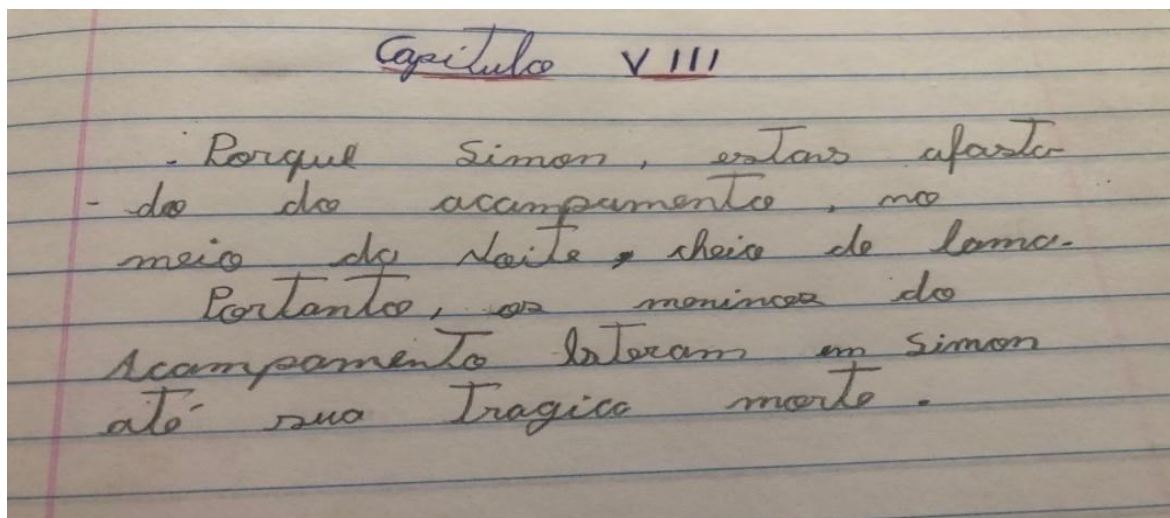 Capitulo VIII
. Porque Simon, estavs afasta-
- do do acampamento, no
meio da Noite, cheio de lama.
Portanto, os meninos do
Acampamento bateram em Simon
até sua Tragica morte.